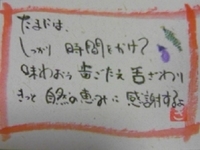 たまには、
しっかり 時間をかけて
味わおう 歯ごたえ 舌ざわり
きっと 自然の恵みに 感謝するよ